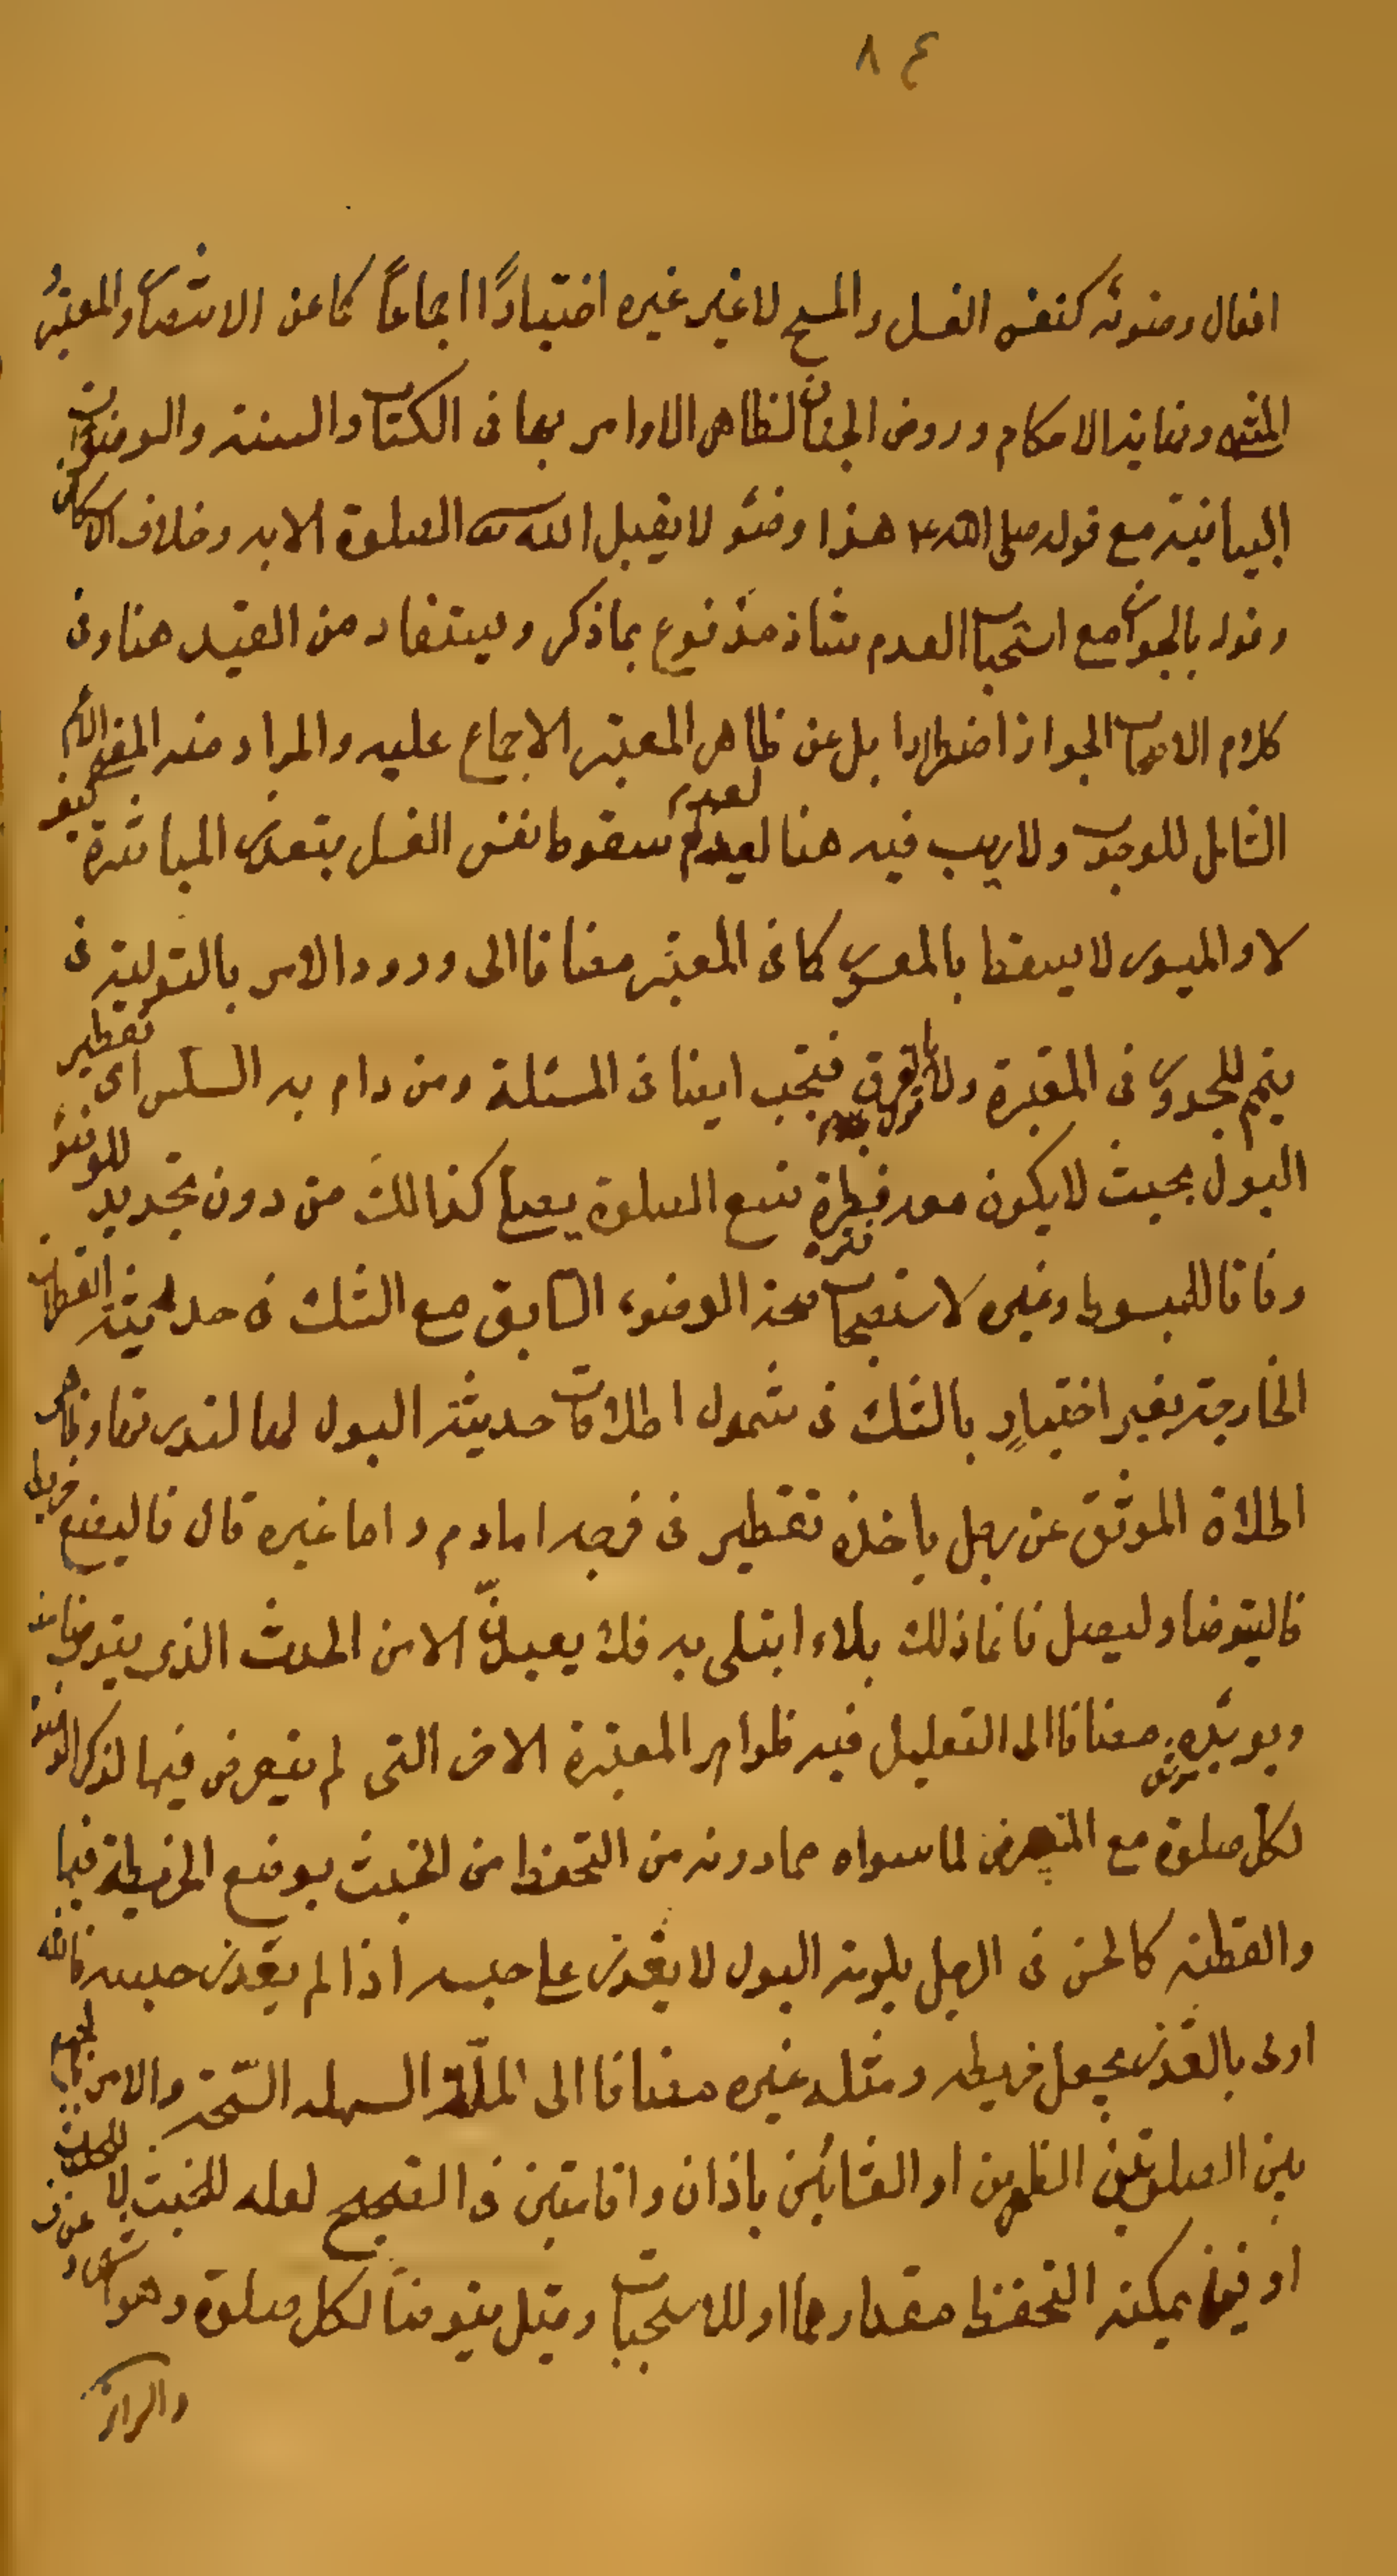 ع ٨
افعال وضوئه كنفس الغسل والمسح لا غير غيره اختيارًا اجماعًا كما عن الانتصار والمعتبر
المنتهى ونهاية الاحكام وروض الجنان لظاهر الاوامر بها فى الكتاب والسنة والوضوءات
البيانية مع قوله صلى الله هذا وضوء لا يقبل الله الصلوة الا به وخلاف الاسكافى
وقوله بالجواز مع استحباب العدم شاذ مدفوع بما ذكر ويستفاد من القيد هنا وفى
كلام الاصحاب الجواز اضطرارا بل عن ظاهر المعتبر الاجماع عليه والمراد منه المعنى الاعم
الشامل للوجوب ولا ريب فيه هنا لعدم لعدم سقوط نفس الغسل بتعذر المباشرة كيف
لا والميسور لا يسقط بالمعسور كما فى المعتبر مضافا الى ورود الامر بالتولية فى
يتمم للمجدور فى المعتبرة ولا فرق فتجب ايضا فى المسئلة ومن دام به السلس اى تقطير
البول بحيث لا يكون معه فترة تسع الصلوة يصلى كذالك من دون تجديد للوضوء
وفاقا للمبسوط وغيره لاستصحاب صحة الوضوء السابق مع الشك فى حدثية القطرات
الخارجة بغير اختيار بالشك فى شمول اطلاقات حدثية البول لها لندرتها وظاهر
اطلاق الموثق عن رجل ياخذه تقطير فى فرجه اما دم واما غيره قال فاليضع خريطة
فاليتوضا وليصل فانما ذلك بلاء ابتلى به فلا يعيدنّ الا من الحدث الذى يتوضا منه
ويويّده مضافا الى التعليل فيه ظواهر المعتبرة الاخر التى لم يتعرض فيها لذكر الوضوء
لكل صلوة مع التعرض لما سواه مما دونه من التحفظ من الخبث بوضع الخريطة فيها
والقطنة كالحسن فى الرجل يعتريه البول لا يقدر على حبسه اذا لم يقدر حبسه فالله
اولى بالعذر يجعل خريطة ومثله غيره مضافا الى الملّة السهله السّمحة والامر بالجمع
بين الصلوتين الظهرين او العشائين باذان واقامتين فى الصحيح لعله للخبث لا للحدث
او فيمن يمكنه التحفظ مقدارهما او للاستحباب وقيل يتوضأ لكل صلوة وهو اشهر